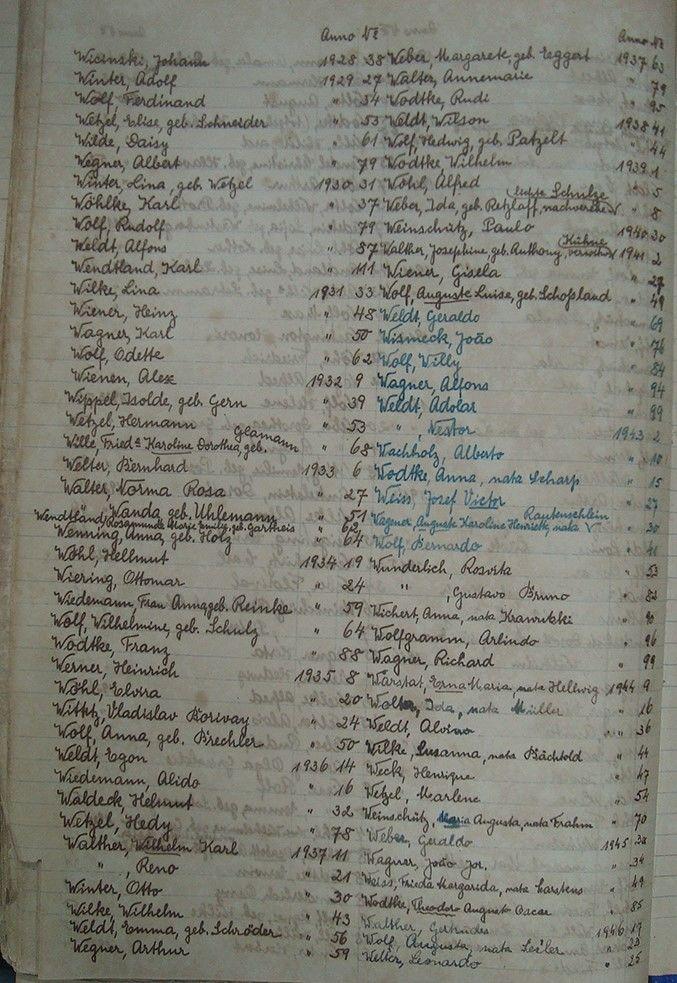 Anno No
Wicinski, Johann 1928 38
Winter, Adolf 1929 27
Wolf, Ferdinand " 34
Wetzel, Elise, geb. Schneider " 53
Wilde, Daisy " 61
Wegner, Albert " 79
Winter, Lina, geb. Wetzel 1930 31
Wöhlke, Karl " 37
Wolf, Rudolf " 79
Weldt, Alfons " 87
Wendtland, Karl " 111
Wilke, Lina 1931 33
Wiener, Heinz " 48
Wagner Karl " 50
Wolf, Odette " 62
Wienen, Alex 1932 9
Wippel, Isolde, geb. Gern " 39
Wetzel, Hermann " 53
Wille, Friedª Karoline Dorothea, geb. Glamann " 68
Welter, Bernhard 1933 6
Walter, Norma Rosa " 27
Wendtland, Wanda geb. Uhlemann " 51
Rosamunde Marie Emilie, geb. Gartheis " 62
Wenning, Anna, geb. Holz " 64
Wöhl, Hellmut 1934 19
Wiering, Ottomar " 24
Wiedemann, Frau Anna geb. Reinke " 59
Wolf, Wilhelmine, geb. Schulz " 64
Wodtke, Franz " 88
Werner, Heinrich 1935 8
Wöhl, Elvira " 20
Vladislav " 24
Wolf, Anna, geb. Brechler " 50
Weldt, Egon 1936 14
Wiedemann, Alido " 16
Waldeck, Helmut " 32
Wetzel, Hedy " 78
Walther, Wilhelm Karl 1937 11
" , Reno " 21
Winter, Otto " 30
Wilke, Wilhelm " 43
Weldt, Emma, geb. Schröder " 56
Wegner, Arthur " 59
Anno No
Weber, Margarete, geb. Eggert 1937 63
Walter, Annemarie " 79
Wodtke, Rudi " 95
Weldt, Wilson 1938 41
Wolf, Hedwig, geb. Patzelt " 44
Wodtke Wilhelm 1939 1
Wöhl, Alfred " 5
Weber, Ida, geb. Retzlaff, Schulze " 8
Weinschütz, Paulo 1940 30
Walther, Josephine, geb. Anthony, Kühne 1941 2
Wiener, Gisela " 27
Wolf, Auguste Luise, geb. Schofsland " 49
Weldt, Geraldo " 69
Wismeck, João " 76
Wolf, Willy " 84
Wagner, Alfons " 94
Weldt, Adolar " 99
" , Nestor 1943 2
Wachholz, Alberto " 10
Wodtke, Anna, nata Scharf " 15
Weiss, Josef Victor " 27
Wagner, Auguste Karoline Henriette, nata Rautenschlein " 30
Wolf, Bernardo " 41
Wunderlich, Rosvita " 53
" , Gustavo Bruno " 83
Wichert, Anna, nata Krawitzki " 90
Wolfgramm, Arlindo " 96
Wagner, Richard " 99
Warstat, Erna Maria, nata Hellwig 1944 9
Wolter, Ida, nata Müller " 16
Weldt, Alvino " 36
Wilke, Susanna, nata Bächtold " 44
Weck, Henrique " 47
Wetzel, Marlene " 54
Weinschütz, Maria Augusta, nata Frahm " 70
Weber, Geraldo 1945
Wagner, João Jor. " 34
Weiss, Frieda Margarida, nata Carstens " 49
Wodtke, Theodoro Augusto Oscar " 85
Walther, Gertrudes 1946 19
Wolf, Augusta, nata " 23
Welter, Leonardo " 25